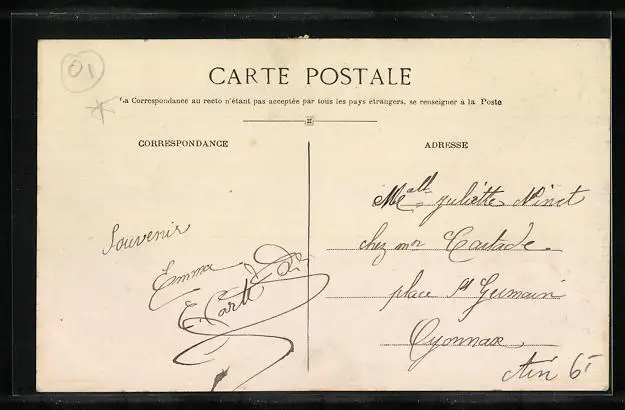 01
CARTE POSTALE
La Correspondance au recto n'étant pas acceptée par tous les pays étrangers, se renseigner à la Poste
CORRESPONDANCE
ADRESSE
Souvenir
Emma
Melle Juliette Ninet
chez mr
place St Germain
Oyonnax
Ain